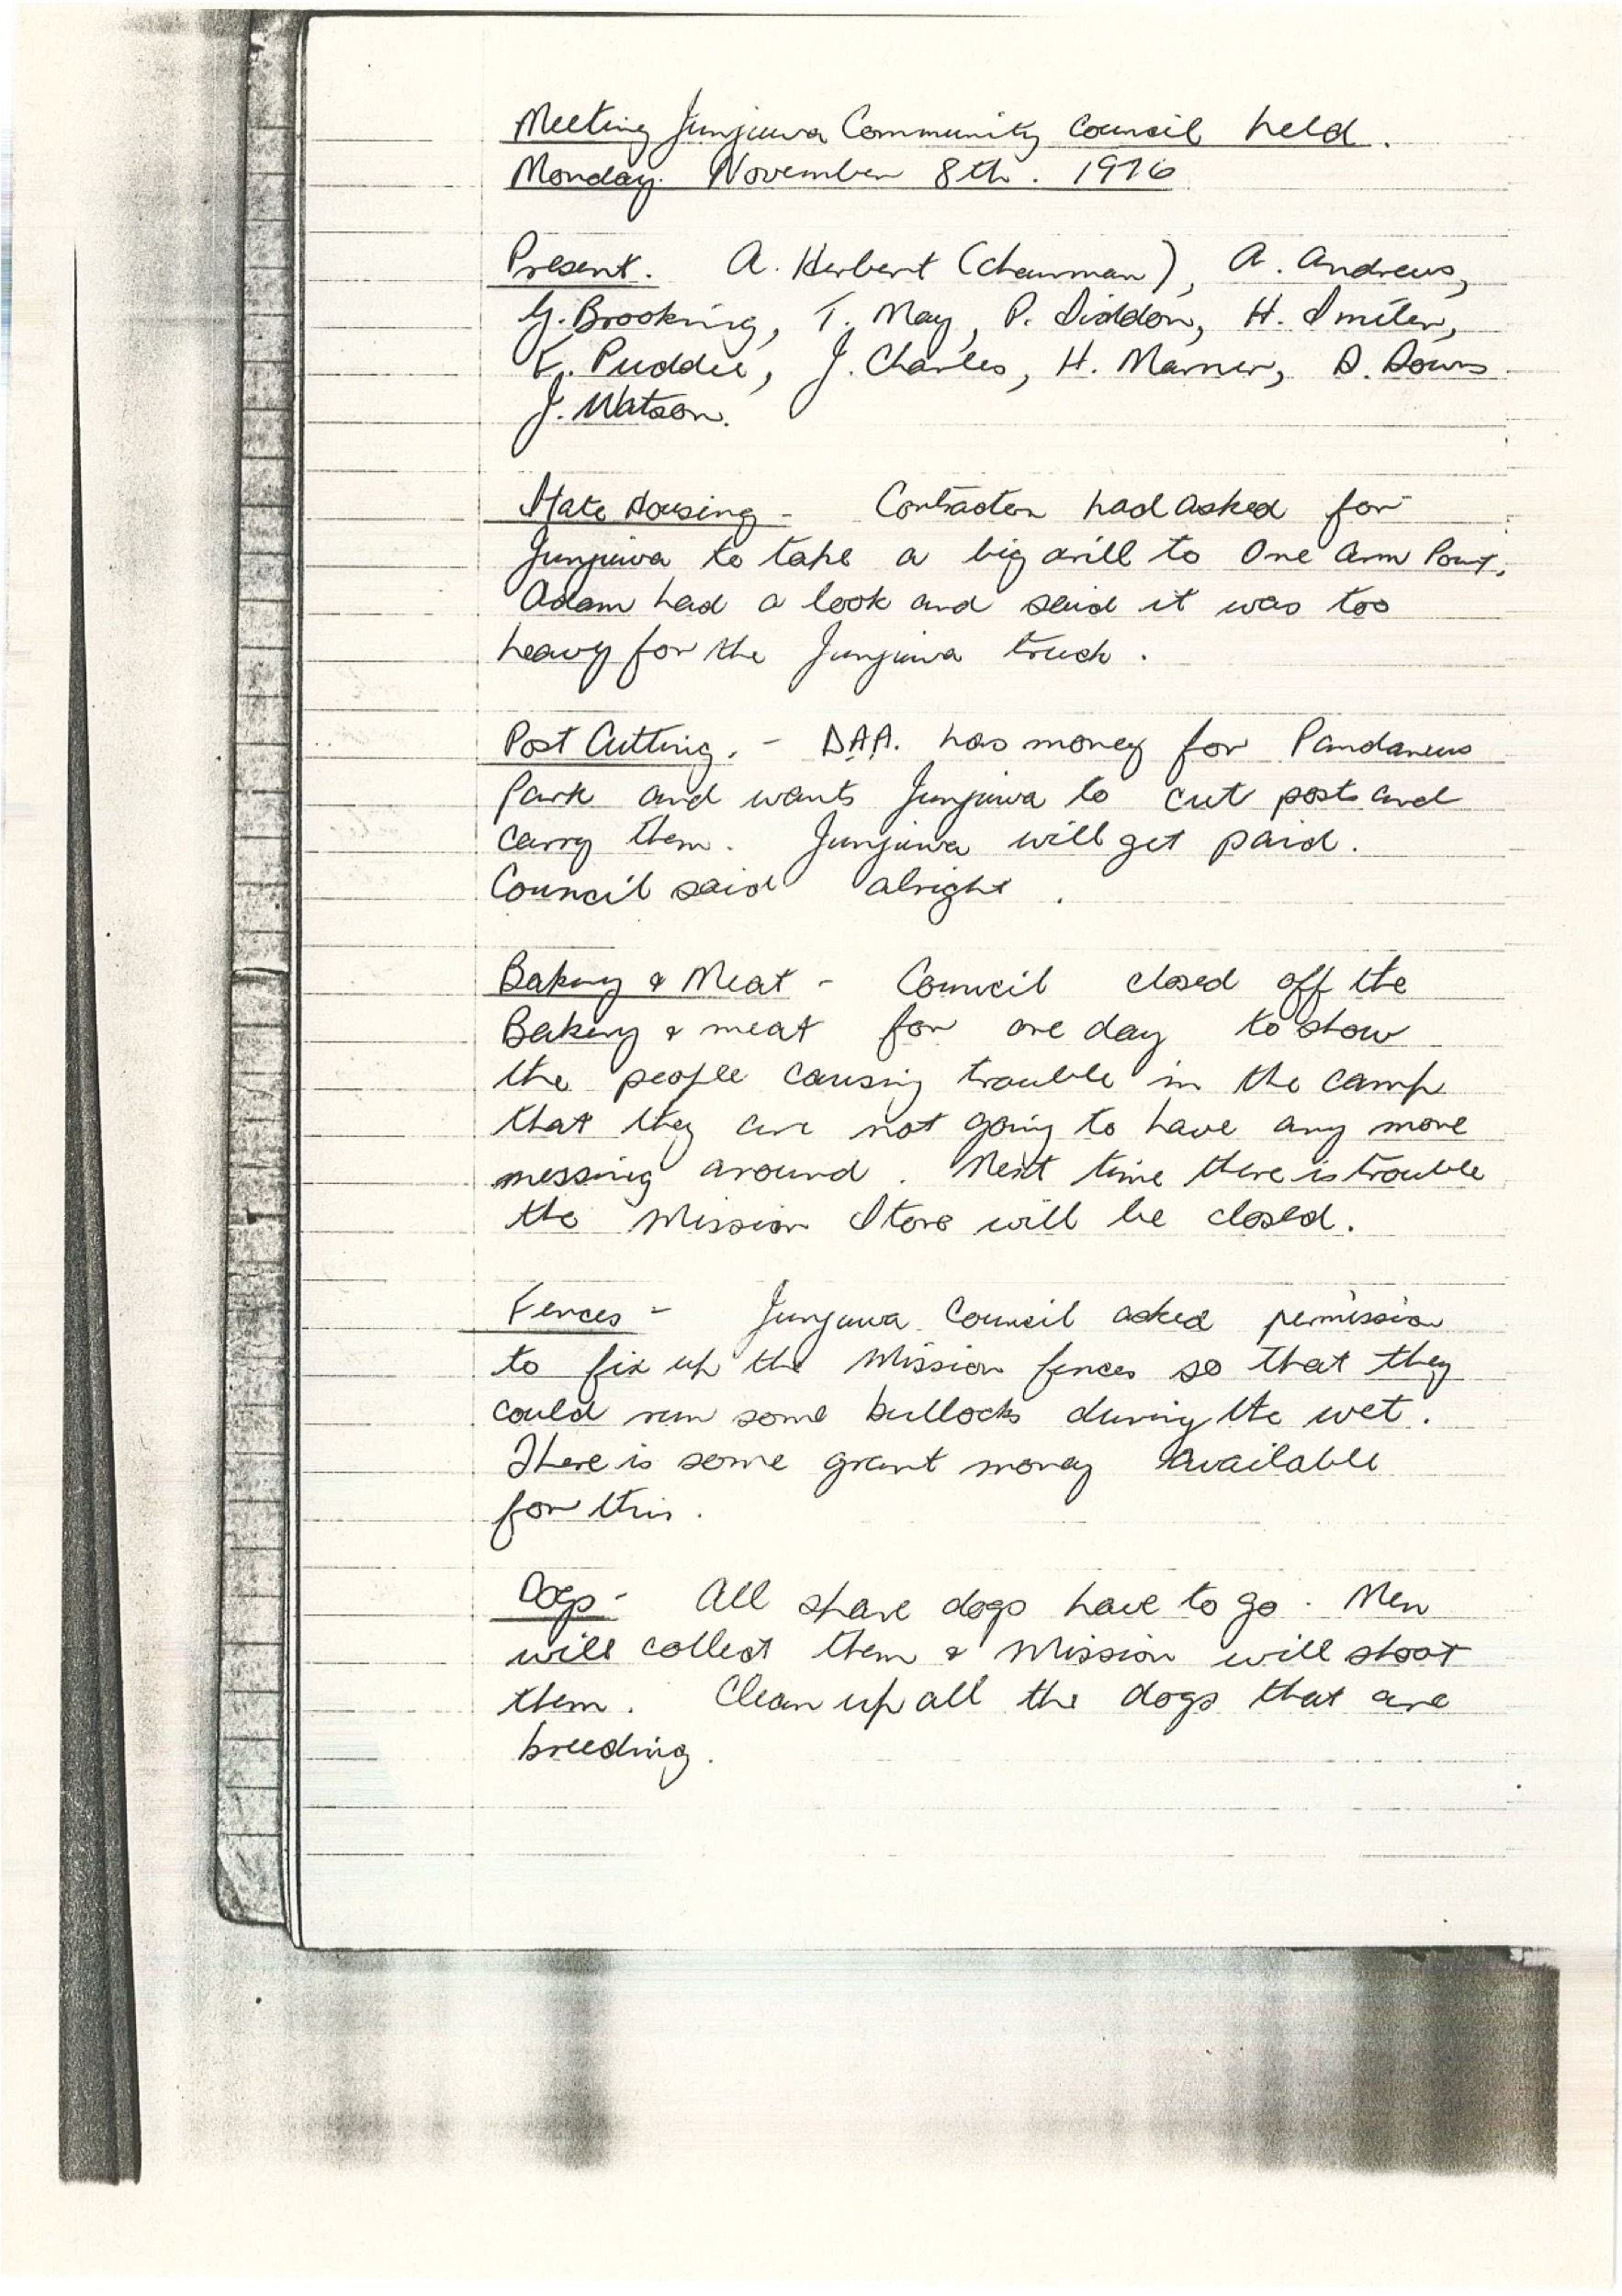 Meeting Junjuwa Community Council held.
Monday. November 8th. 1976
Present. A. Herbert (Chairman), A. Andrews,
G. Brooking, T. May, P. Siddon, H. Smiler,
K. Puddie, J. Charles, H. Marner, D. Downs
J. Watson.
State Housing - Contractor had asked for
Junjuwa to take a big drill to One Arm Point.
Adam had a look and said it was too
heavy for the Junjuwa truck.
Post Cutting. - D.A.A. has money for Pandanus
Park and wants Junjuwa to cut posts and
carry them. Junjuwa will get paid.
Council said alright.
Bakery & Meat - Council closed off the
Bakery & meat for one day to show
the people causing trouble in the camp
that they are not going to have any more
messing around. Next time there is trouble
the Mission Store will be closed.
Fences - Junjuwa Council asked permission
to fix up the Mission fences so that they
could run some bullocks during the wet.
There is some grant money available
for this.
Dogs - All spare dogs have to go. Men
will collect them & Mission will shoot
them. Clean up all the dogs that are
breeding.